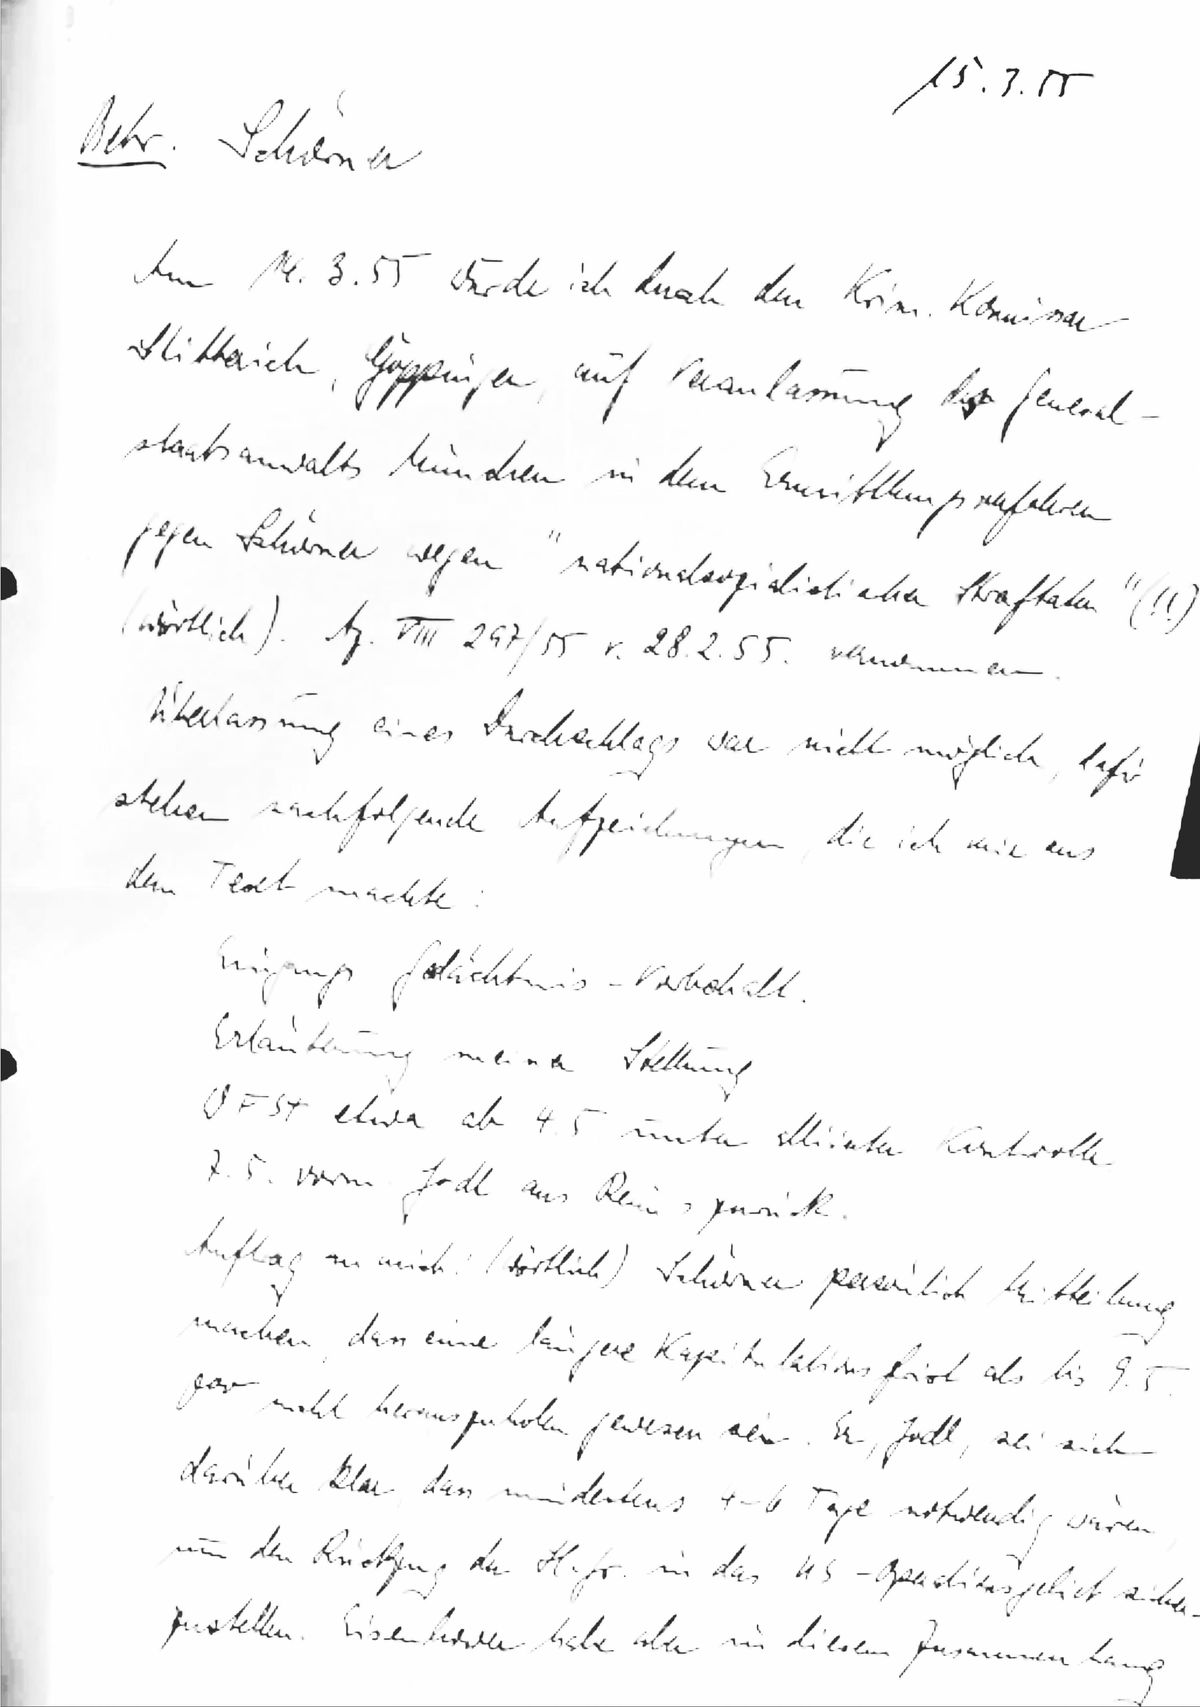 15.3.55
Betr. Schörner
Am 14.3.55 wurde ich durch den Krim. Komissar
Göppingen, auf Veranlassung des General-
staatsanwalts München in dem Ermittlungsverfahren
gegen Schörner wegen "nationalsozialistischer Straftaten" (!!)
(wörtlich). Az. VIII 297/55 v. 28.2.55. vernommen.
Überlassung eines Durchschlags war nicht möglich, dafür
stehen nachfolgende Aufzeichnungen, die ich mir aus
dem Text machte:
Eingangs Gedächtnis-Vorbehalt.
Erläuterung meiner Stellung
WFSt etwa ab 4.5 unter alliierter Kontrolle
7.5. vorm. Jodl aus Reims zurück.
Auftrag an mich: (wörtlich) Schörner persönlich Mitteilung
machen, dass eine längere Kapitulationsfrist als bis 9.5.
gar nicht herauszuholen gewesen sei. Er, Jodl, sei sich
darüber klar, dass mindestens Tage notwendig wären,
um den Rückzug der H.Gr. in das US-Operationsgebiet sicher-
zustellen. Eisenhower habe aber in diesem Zusammenhang